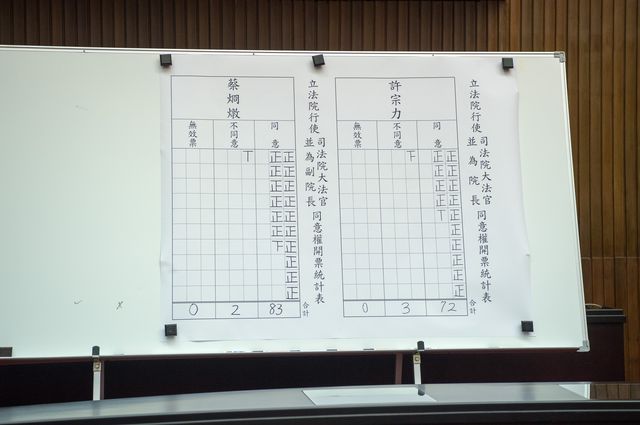 立法院行使
司法院大法官
並為院長
同意權開票統計表
許宗力
同意
不同意
無效票
正正正正正正正正正正
正正正正丅
下
合計
72
3
0
立法院行使
司法院大法官
並為副院長
同意權開票統計表
蔡烱燉
同意
不同意
無效票
正正正正正正正正正正
正正正正正正下
丅
合計
83
2
0